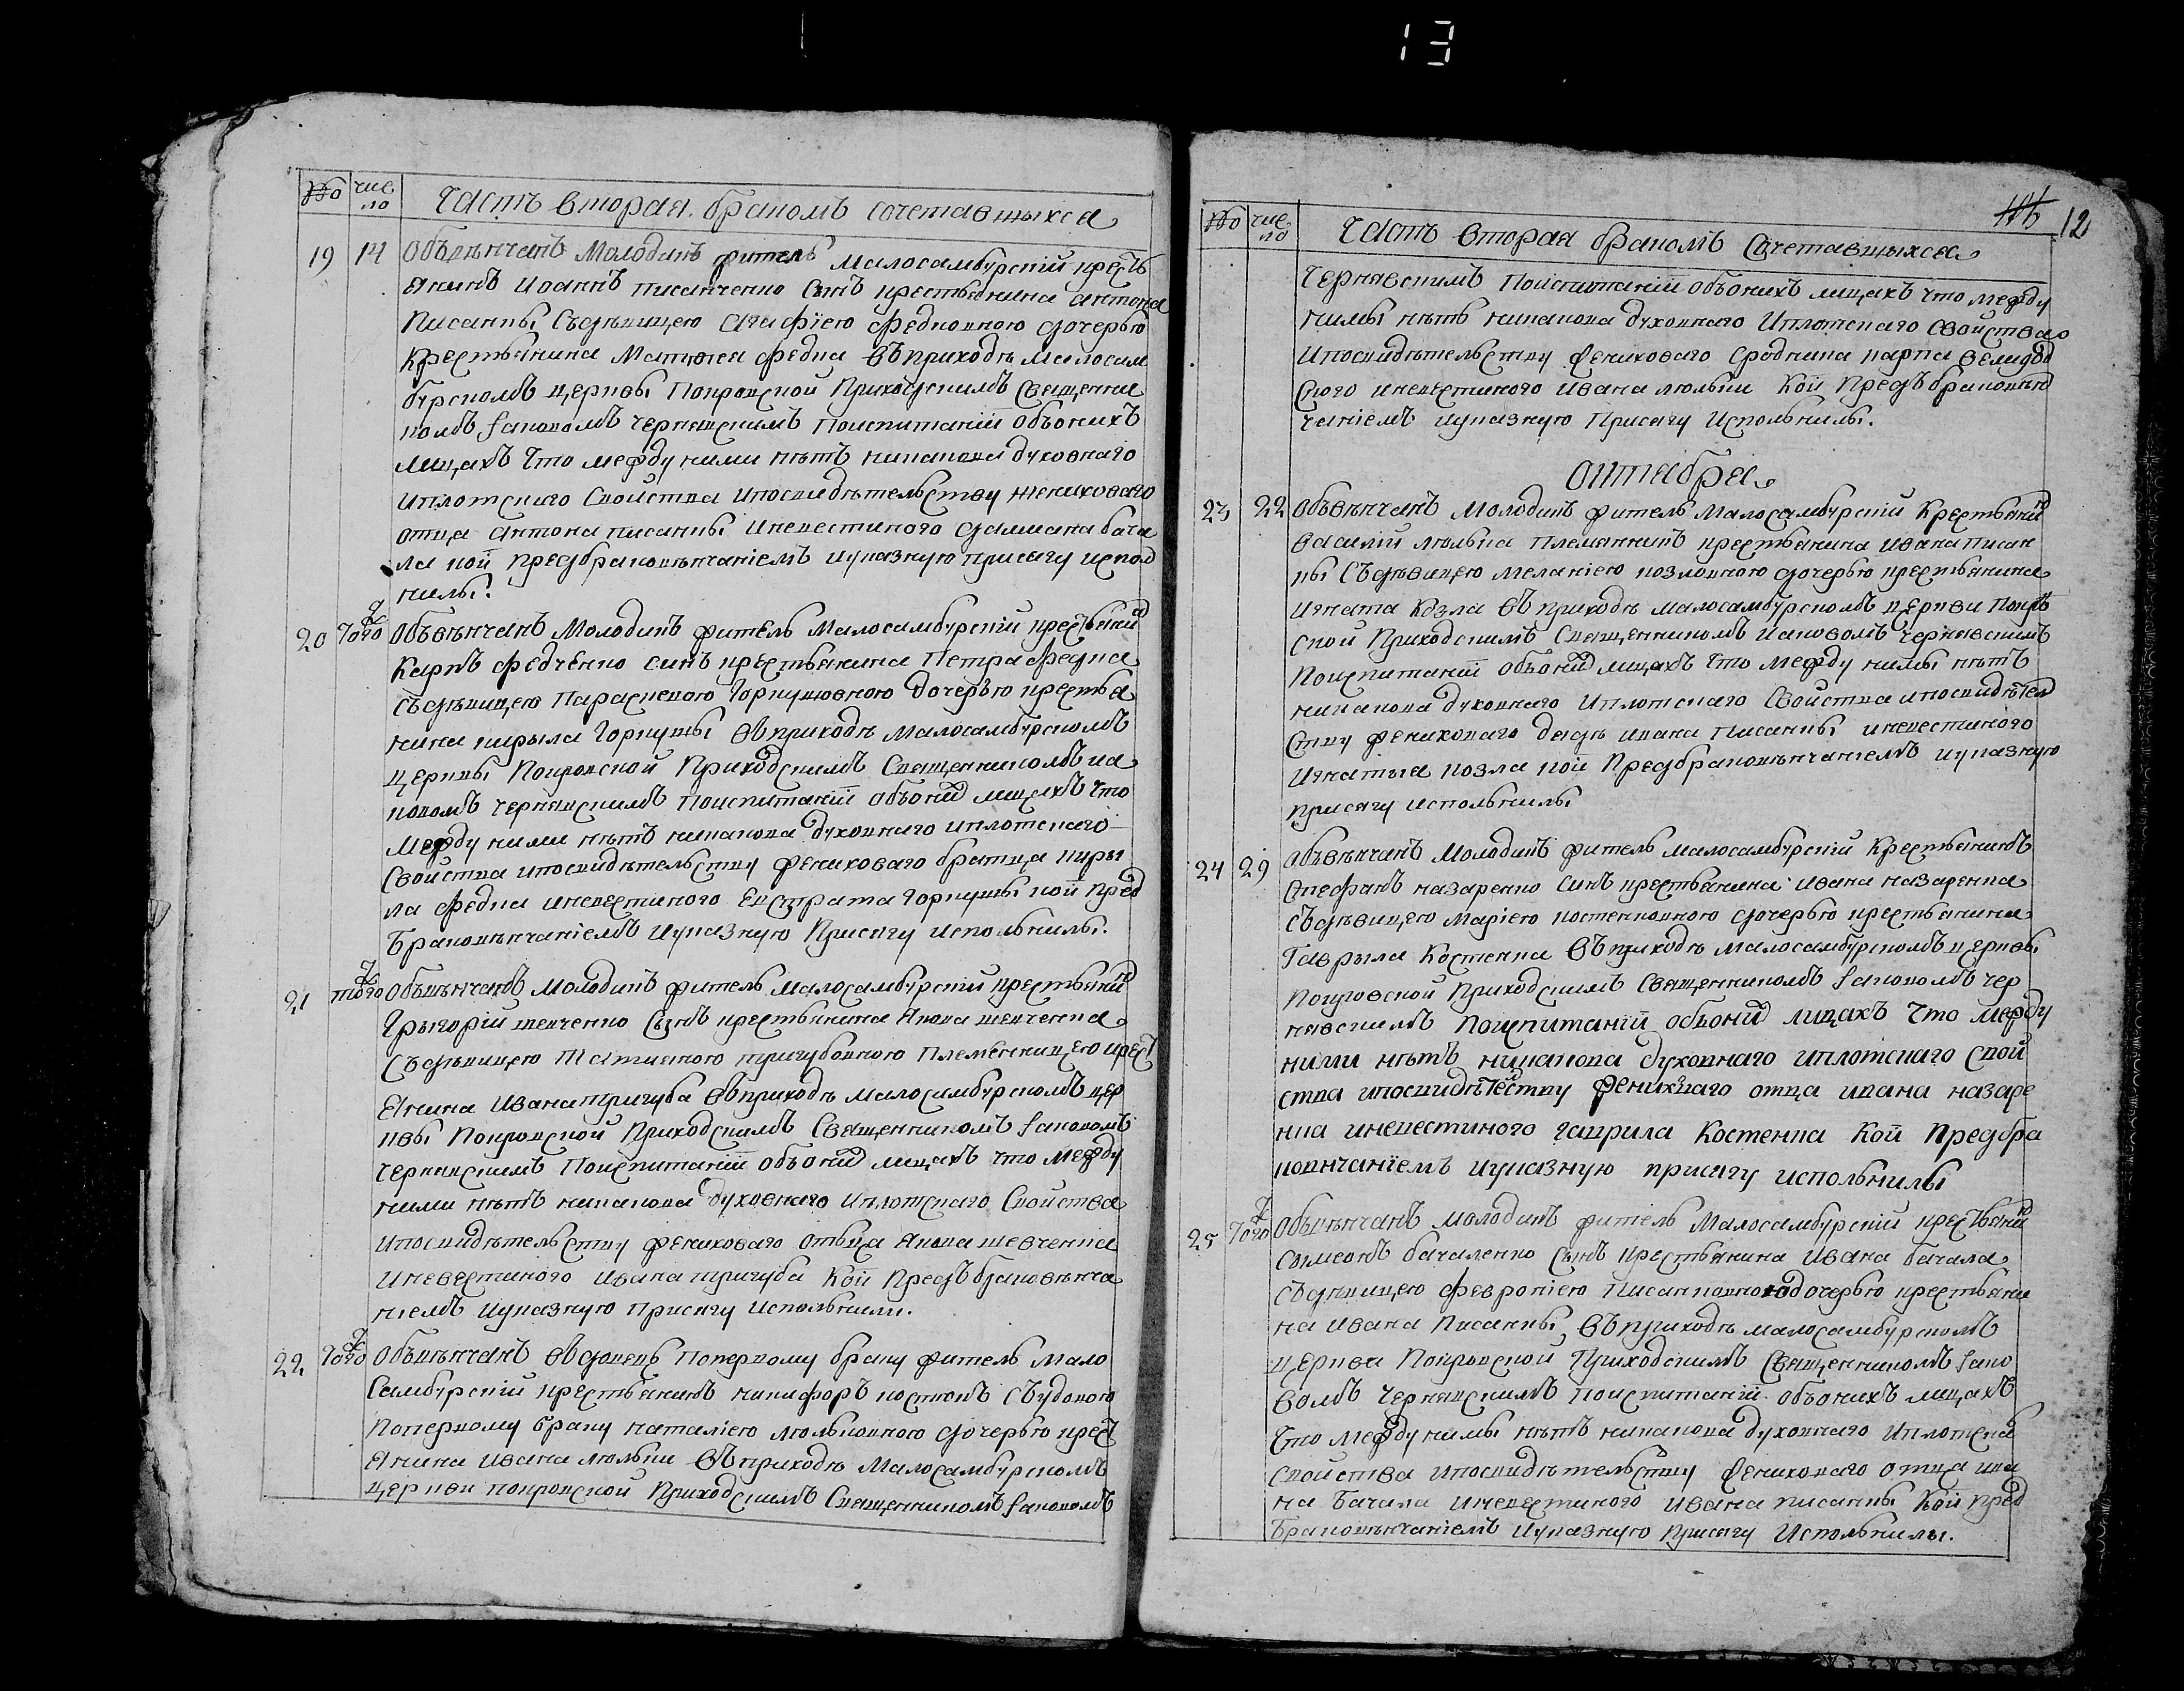 13
No число Часть вторая бракомъ сочетавшыхся
19 14 Объвѣнчанъ Молодикъ житель малосамбурскій крестъ
янинъ Иоаннъ писанченко Сынъ крестьянина антона
Писанкы Съдѣвицею Агафіею федковною дочерью
Крестьянина Матфея федка въ приходѣ малосам
бурскомъ церквы Покровской Приходскимъ Священни
комъ Iаковомъ чернявскимъ поиспитаніи обьонихъ
лицахъ что между ними нѣтъ никакова духовнаго
иплотскаго Свойства ипосвидѣтельству жениховаго
отца антона писанкы иневестиного дамиана бача
ла кои предбраковѣнчаніемъ иуказную присягу исполь
нилы.
20 Того ж Объвѣнчанъ Молодикъ житель Малосамбурскій крестьянин
Карпъ федченко синъ крестьянина Петра федка
съдѣвицею Параскевою Горкушовною дочерью крестья
нина кирыла Горкушы въ приходѣ малосамбурскомъ
церквы Покровской Приходскимъ Священникомъ иа
ковомъ чернявскимъ поиспитаніи обьоних лицахъ что
между ними нѣтъ никакова духовнаго иплотскаго
Свойства ипосвидѣтельству жениховаго братца киры
ла федка иневестиного Евстрата горкушы кои пред
браковѣнчаніемъ иуказную присягу исполънилы.
21 того ж Объвѣнчанъ Молодикъ житель малосамбурскій крестьянин
Грыгорій шевченко Сынъ крестьянина Якова шевченка
Съдѣвицею Татияною тригубовною племенницею крест
янина Ивана тригуба въ приходѣ малосамбурскомъ цер
квы Покровской Приходскимъ Священникомъ Iаковомъ
чернявскимъ поиспитаніи обьоних лицахъ что между
ними нѣтъ никакова духовнаго иплотскаго Свойства
ипосвидѣтельству жениховаго отьца якова шевченка
иневестиного Ивана тригуба Кои предъ браковѣнча
ніемъ иуказную присягу исполънили.
22 Того ж Объвѣнчанъ вдовець поперкому браку житель мало
Самбурскій крестьянинъ никифоръ костюкъ съ удовою
поперкому браку наталіею люлькокною дочерью крест
янина ивана люльки въ приходѣ Малосамбурскомъ
церкви покровской Приходскимъ Священникомъ Iаковомъ
12
No число Часть вторая бракомъ Сочетавшыхся
чернявскимъ Поиспитаніи обьонихъ лицахъ что между
нимы нѣтъ никакова духовнаго иплотскаго свойства
ипосвидѣтельству жениховаго сродника карпа
иневестиного Ивана люльки Кои предъ браковѣн
чаніемъ иуказную присягу исполънилы.
октября
23 22 Объвѣнчанъ Молодикъ житель Малосамбурскій Крестьянин
василій люлька племянникъ крестьянина Ивана писан
кы Съдѣвицею меланіею козловною дочерью крестьянина
игната Козла въ приходѣ малосамбурскомъ церкви Покров
ской Приходскимъ Священникомъ иаковомъ чернявскимъ
поиспитаніи обьоних лицахъ что между нимы нѣтъ
никакова духовнаго иплотскаго Свойства ипосвидѣтел
ству жениховаго дядѣ ивана писанкы иневестиного
игнатия козла кои Предбраковѣнчаніемъ иуказную
присягу исполънилы
24 29 Объвѣнчанъ молодикъ житель малосамбурскій Крестьянинъ
Стефанъ назаренко синъ крестьянина ивана назаренка
съдѣвицею маріею костенковною дочерью крестьянина
Гаврыла Костенка въ приходѣ малосамбурскомъ церквы
покровской приходскимъ священникомъ Iаковомъ чер
нявскимъ Поиспитаній обьоних лицахъ что между
ними нѣтъ никакова духовнаго иплотскаго свой
ства ипосвидѣтелству женихваго отца ивана назаре
нка иневестиного гаврила Костенка Кой предбра
ковнчаніемъ иуказную присягу исполънилы
25 Того ж Объвѣнчанъ молодикъ житель Малосамбурскій крестьянин
Сымеонъ бачаленко Сынъ крестьянина Ивана бачала
съдѣвицею февроніею Писанковною дочерью крестьяни
на ивана Писанкы въ приходѣ малосамбурскомъ
церкви Покровской Приходскимъ Священникомъ Iако
вомъ чернявскимъ поиспитаніи обьонихъ лицахъ
что между нимы нѣтъ никакова духовнаго иплотска
свойства ипосвидѣтельству жениховаго отца ива
на бачала иневестиного ивана писанкы Кои пред
браковѣнчаніемъ иуказную присягу исполънилы.